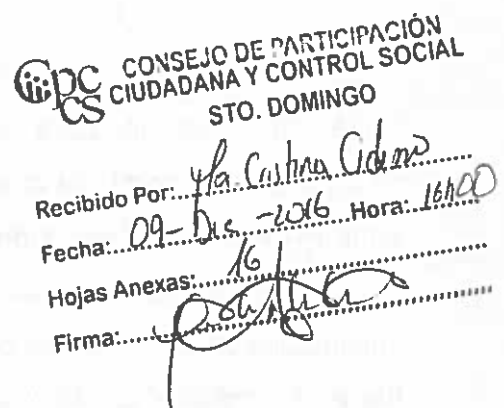 Cpccs CONSEJO DE PARTICIPACIÓN
CIUDADANA Y CONTROL SOCIAL
STO. DOMINGO
Recibido Por: Ma Cristina
Fecha: 09-Dic-2016 Hora: 16h00
Hojas Anexas: 16
Firma: